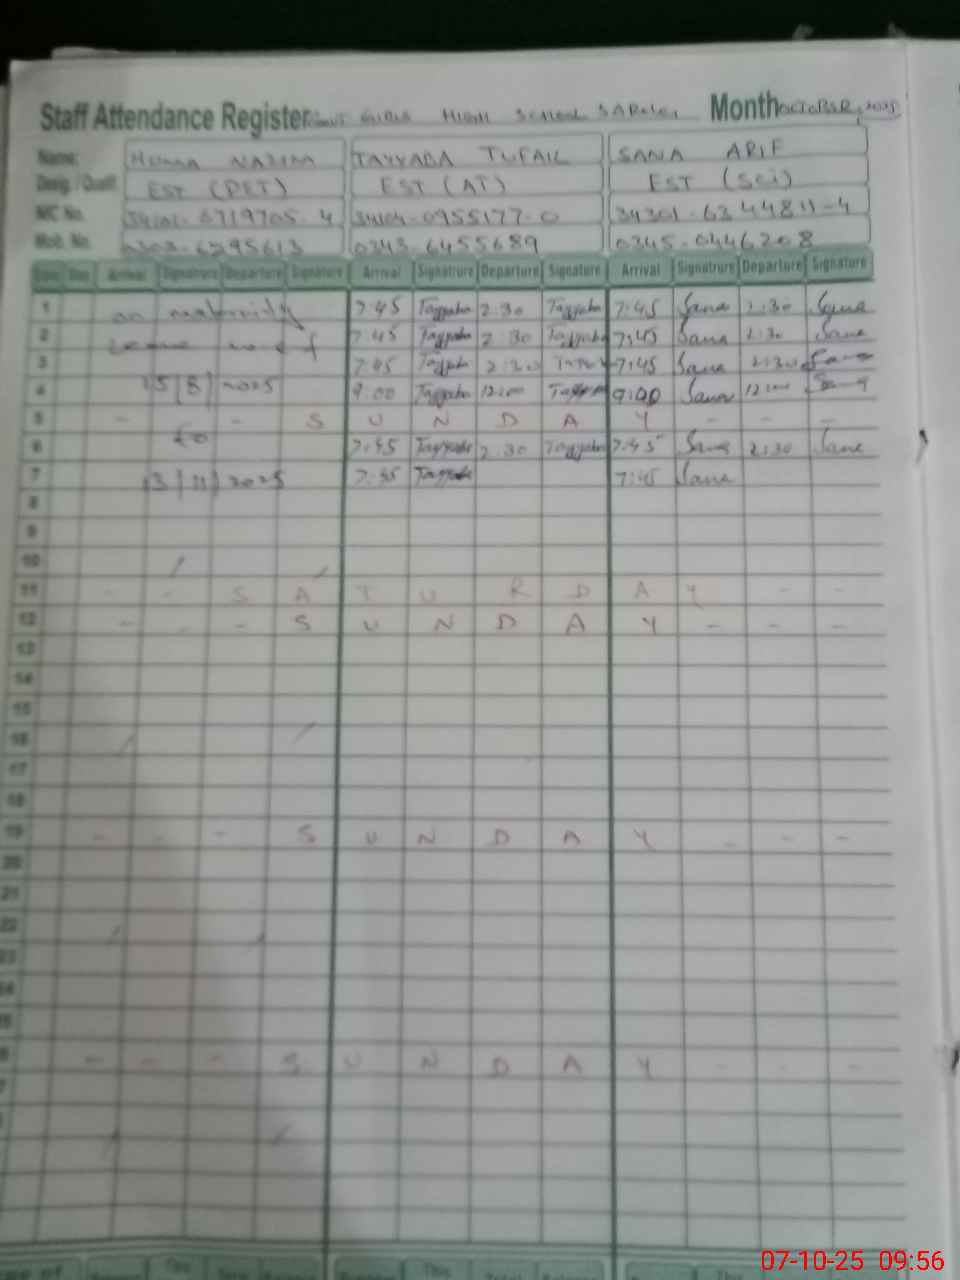 Staff Attendance Register GOVT GIRLS HIGH SCHOOL Month OCTOBER, 2025
Name: HUMA NAZIM TAYYABA TUFAIL SANA ARIF
Desig. / Qualif. EST (PET) EST (AT) EST (Sci)
N/C No. 34104-0955177-0 34301-6344811-4
Mob. No. 0303-6295613 0343-6455689 0345-0446208
Arrival Signatrure Departure Signature Arrival Signatrure Departure Signature Arrival Signatrure Departure Signature
1 on maternity 7:45 Tayyaba 2:30 Tayyaba 7:45 Sana 2:30 Sana
2 Leave 7:45 Tayyaba 2:30 Tayyaba 7:45 Sana 2:30 Sana
3 7:45 Tayyaba 2:30 7:45 Sana 2:30 Sana
4 15/8/2025 9:00 Tayyaba 12:00 Tayyaba 9:00 Sana 12:00 Sana
5 - - - S U N D A Y - - -
6 to 7:45 Tayyaba 2:30 Tayyaba 7:45 Sana 2:30 Sana
7 13/11/2025 7:45 Tayyaba 7:45 Sana
8
9
10
11 - - S A T U R D A Y - -
12 - - - S U N D A Y - - -
13
14
15
16
17
18
19 - - - S U N D A Y - - -
20
21
22
23
- - - S U N D A Y - - -
This This
07-10-25 09:56